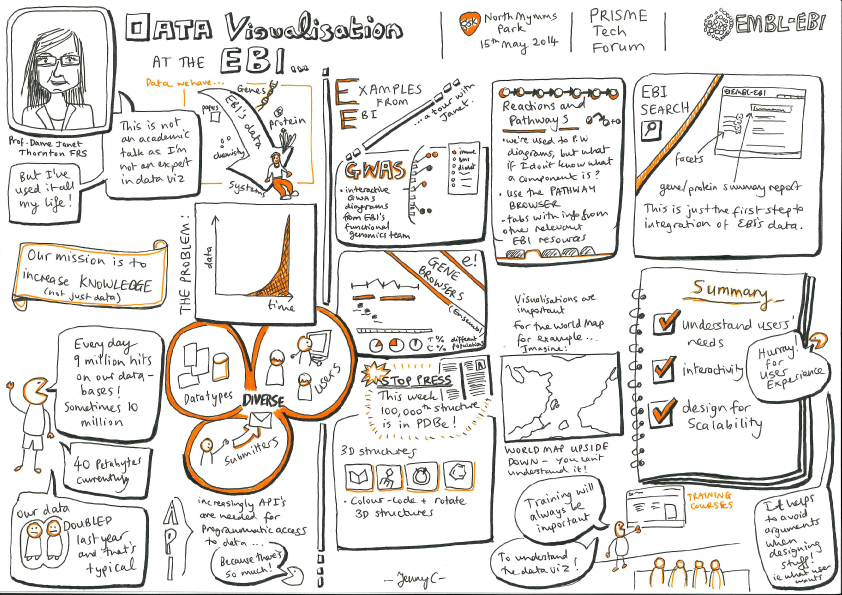 DATA Visualisation
AT THE EBI...
North Mymms
Park
15th May 2014
PRISME
Tech
Forum
EMBL-EBI
Prof. Dame Janet
Thornton FRS
This is not
an academic
talk as I'm
not an expert
in data viz
But I've
used it all
my life!
Data we have...
Genes
papers
EBI's data
Protein
chemistry
Systems
Our mission is to
increase KNOWLEDGE
(not just data)
THE PROBLEM:
data
time
Every day
9 million hits
on our data-
bases!
Sometimes 10
million
40 Petabytes
currently
Our data
DOUBLED
last year
and that's
typical
Datatypes
DIVERSE
Users
Submitters
API
increasingly API's
are needed for
Programmatic access
to data...
Because there's
so much!
EXAMPLES
FROM
EBI
...a tour with
Janet.
GWAS
• interactive
GWAS
diagrams
from EBI's
functional
genomics team
e!
GENE
BROWSERS
(Ensembl)
T%
C%
different
populations
STOP PRESS
This week
100,000th structure
is in PDBe!
3D structures
• Colour-code + rotate
3D structures
— Jenny C —
Reactions and
Pathways
• we're used to P.W
diagrams, but what
if I don't know what
a component is?
• use the PATHWAY
BROWSER
• tabs with info from
other relevant
EBI resources
Visualisations are
important
For the world map
for example...
Imagine:
WORLD MAP UPSIDE
DOWN - you can't
understand it!
Training will
always be
important
To understand
the data viz!
TRAINING
COURSES
EBI
SEARCH
EMBL-EBI
facets
gene/protein summary report
This is just the first step to
integration of EBI's data.
Summary
understand users'
needs
interactivity
design for
Scalability
Hurray!
for
User
Experience
It helps
to avoid
arguments
when
designing
stuff!
ie what user
wants